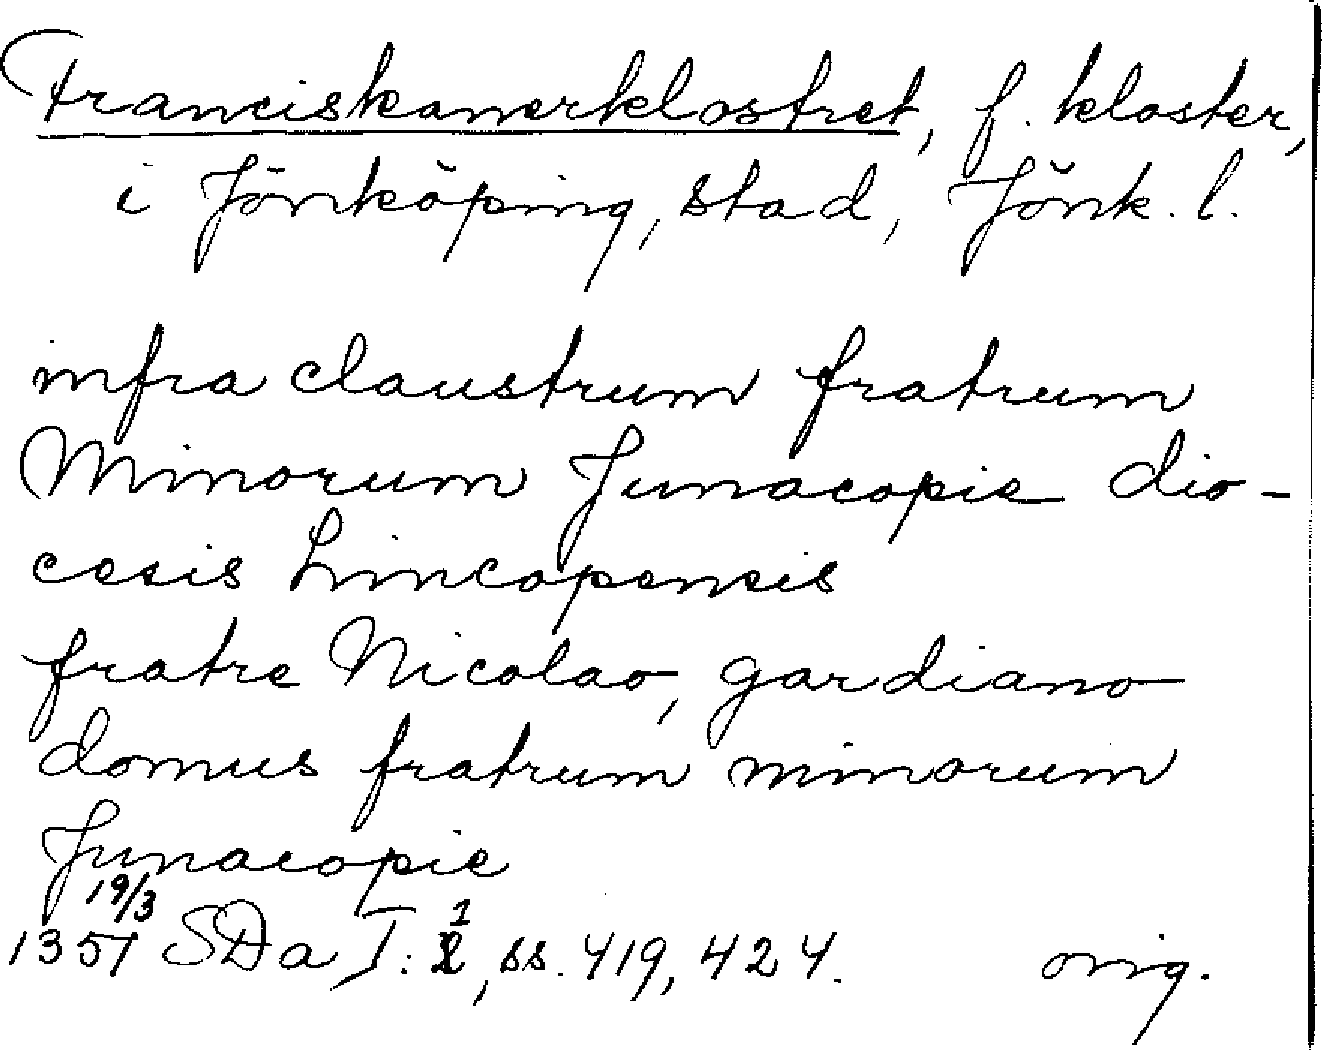 Franciskanerklostret, f. kloster,
i Jönköping, stad, Jönk. l.
infra claustrum fratrum
Minorum Junacopie dio-
cesis Lincopensis
fratre Nicolao, gardiano
domus fratrum minorum
Junacopie
19/3
1351 SDa I: 1, ss. 419, 424. orig.